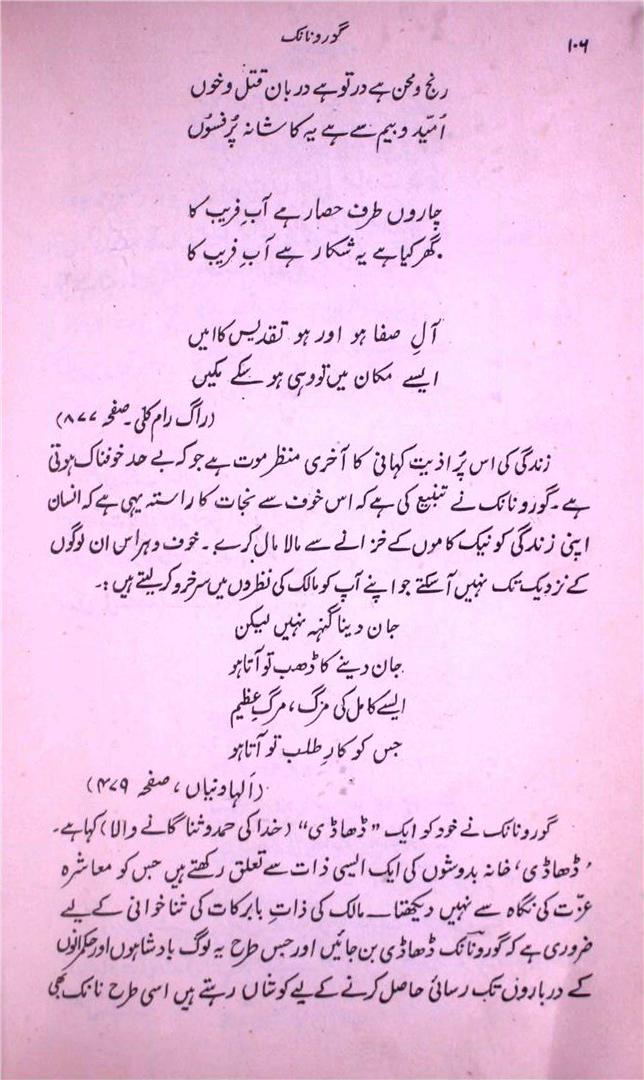 گورو نانک
۱۰۶
رنج و محن ہے در تو ہے دربان قتل و خوں
اُمّید و بیم سے ہے یہ کاشانہ پُر فسوں
چاروں طرف حصار ہے آبِ فریب کا
گھر کیا ہے یہ شکار ہے آبِ فریب کا
آلِ صفا ہو اور ہو تقدیس کا امیں
ایسے مکان میں تو وہی ہو سکے مکیں
(راگ رام کلی۔ صفحہ ۸۷۷)
زندگی کی اس پُر اذیت کہانی کا آخری منظر موت ہے جو کہ بے حد خوفناک ہوتی
ہے۔ گورو نانک نے تنبیع کی ہے کہ اس خوف سے نجات کا راستہ یہی ہے کہ انسان
اپنی زندگی کو نیک کاموں کے خزانے سے مالا مال کرے۔ خوف و ہراس ان لوگوں
کے نزدیک تک نہیں آ سکتے جو اپنے آپ کو مالک کی نظروں میں سرخرو کر لیتے ہیں :۔
جان دینا گنہہ نہیں لیکن
جان دینے کا ڈھب تو آتا ہو
ایسے کامل کی مرگ، مرگِ عظیم
جس کو کارِ طلب تو آتا ہو
(الہاونیاں، صفحہ ۴۷۹)
گورو نانک نے خود کو ایک ”ڈھاڈی“ (خدا کی حمد و ثنا گانے والا) کہا ہے۔
’ڈھاڈی‘ خانہ بدوشوں کی ایک ایسی ذات سے تعلق رکھتے ہیں جس کو معاشرہ
عزّت کی نگاہ سے نہیں دیکھتا۔ مالک کی ذاتِ بابرکات کی ثنا خوانی کے لیے
ضروری ہے کہ گورو نانک ڈھاڈی بن جائیں اور جس طرح یہ لوگ بادشاہوں اور حکمرانوں
کے درباروں تک رسائی حاصل کرنے کے لیے کوشاں رہتے ہیں اسی طرح نانک بھی